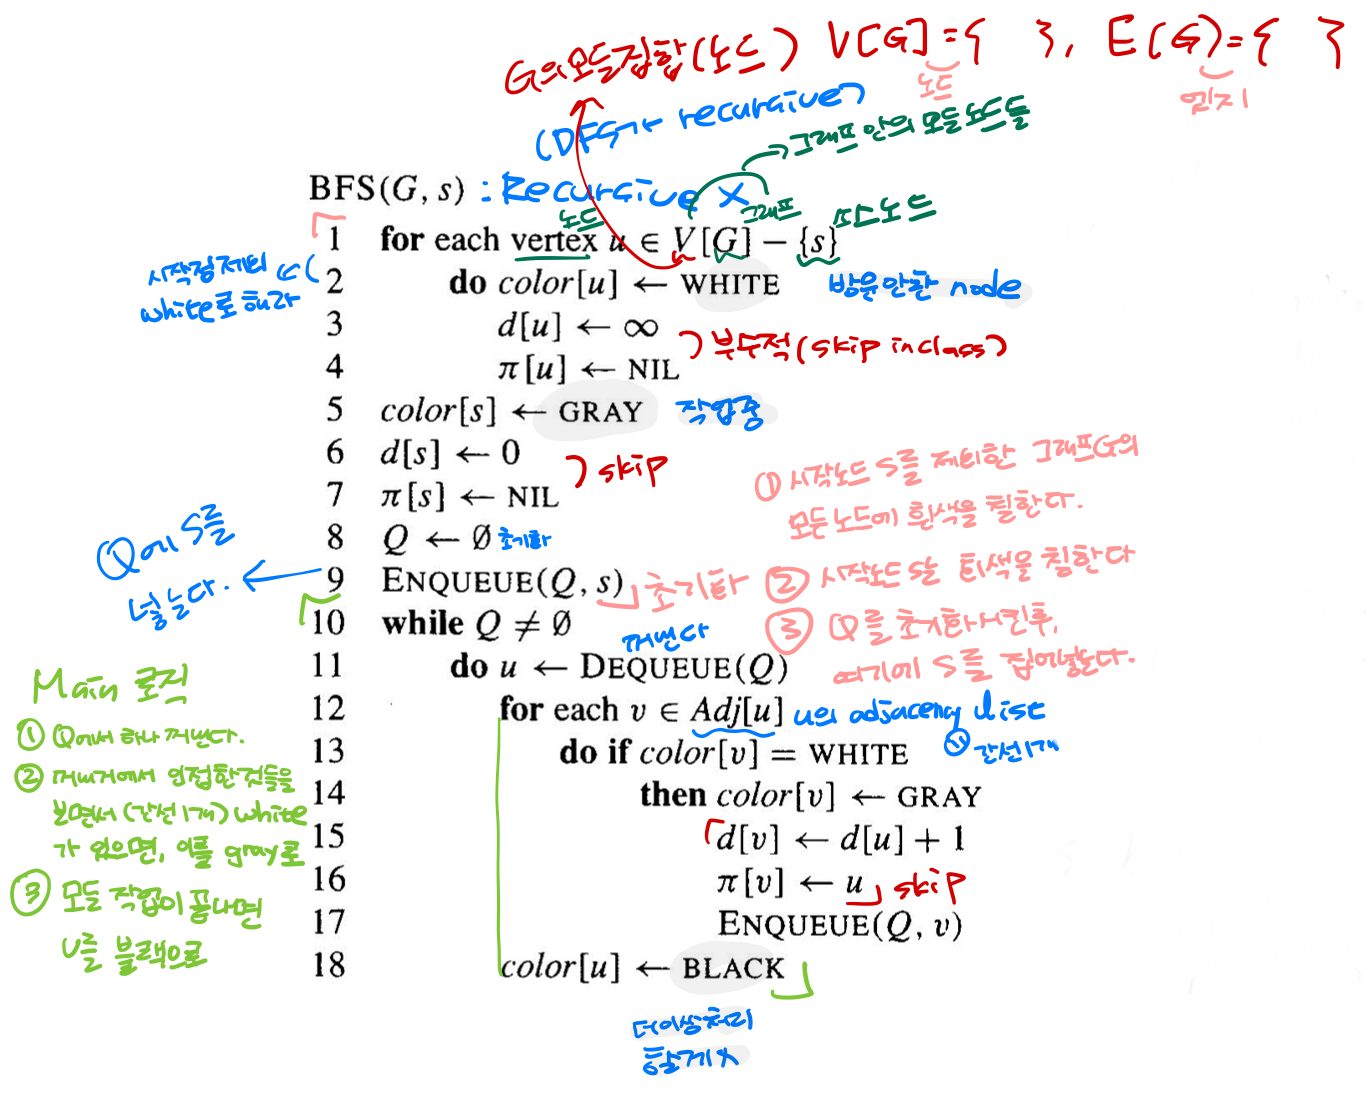 G의 모든집합(노드) V[G]={ }, E(G)={ }
노드
엣지
(DFS가 recursive)
그래프 안의 모든노드들
BFS(G, s) : Recursive X
노드
그래프
1 for each vertex u ∈ V[G] − {s}
시작점 제외
white로 해라
2 do color[u] ← WHITE 방문안한 node
3 d[u] ← ∞
부수적(skip in class)
4 π[u] ← NIL
5 color[s] ← GRAY 작업중
6 d[s] ← 0
skip
7 π[s] ← NIL
① 시작노드 S를 제외한 그래프G의
모든 노드에 흰색을 칠한다.
8 Q ← ∅ 초기화
Q에 S를
넣는다.
9 ENQUEUE(Q, s) 초기화
② 시작노드 S는 회색을 칠한다
③ Q를 초기화시킨후,
여기에 S를 집어넣는다.
10 while Q ≠ ∅
꺼낸다
11 do u ← DEQUEUE(Q)
12 for each v ∈ Adj[u] u의 adjacency list
간선1개
13 do if color[v] = WHITE
14 then color[v] ← GRAY
15 d[v] ← d[u] + 1
16 π[v] ← u skip
17 ENQUEUE(Q, v)
18 color[u] ← BLACK
더이상처리
할게 X
Main 로직
① Q에서 하나 꺼낸다.
② 꺼낸거에서 인접한것들을
보면서 (간선1개) white
가 있으면, 이를 gray로
③ 모든 작업이 끝나면
U를 블랙으로